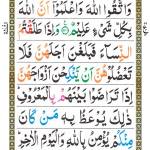 وَاتَّقُوا اللّٰهَ وَاعْلَمُوْۤا اَنَّ اللّٰهَ
بِكُلِّ شَیْءٍ عَلِیْمٌ۠ وَاِذَا طَلَّقْتُمُ
النِّسَآءَ فَبَلَغْنَ اَجَلَهُنَّ فَلَا
تَعْضُلُوْهُنَّ اَنْ یَّنْكِحْنَ اَزْوَاجَهُنَّ
اِذَا تَرَاضَوْا بَیْنَهُمْ بِالْمَعْرُوْفِ
ذٰلِكَ یُوْعَظُ بِهٖ مَنْ كَانَ
مِنْكُمْ یُؤْمِنُ بِاللّٰهِ وَالْیَوْمِ الْاٰخِرِ